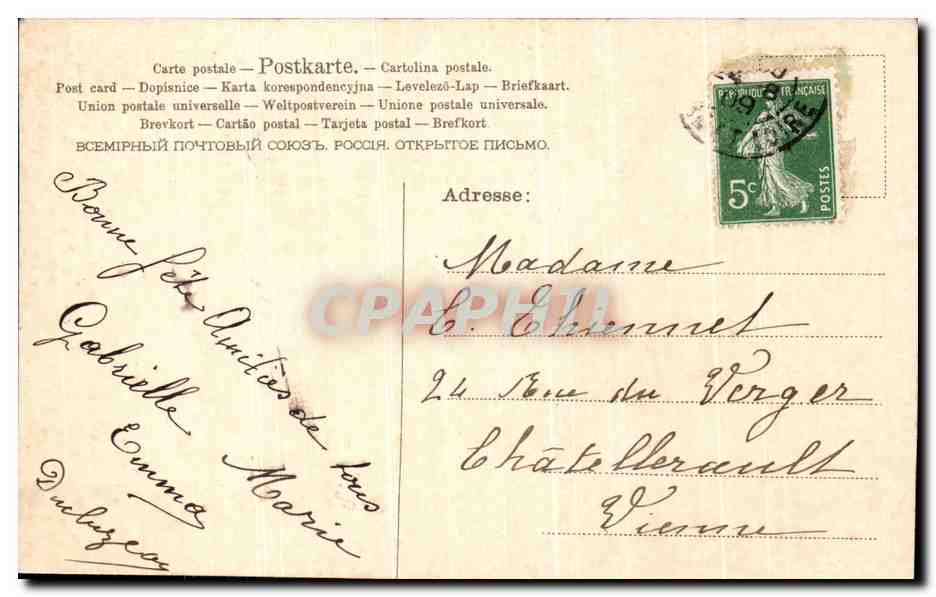 Carte postale — Postkarte. — Cartolina postale.
Post card — Dopisnice — Karta korespondencyjna — Levelező-Lap — Briefkaart.
Union postale universelle — Weltpostverein — Unione postale universale.
Brevkort — Cartão postal — Tarjeta postal — Brefkort
ВСЕМІРНЫЙ ПОЧТОВЫЙ СОЮЗЪ. РОССІЯ. ОТКРЫТОЕ ПИСЬМО.
RÉPUBLIQUE FRANÇAISE
5c
POSTES
Adresse:
Bonne fête Amitiés de tous
Gabrielle Marie
Emma
Madame
C. Thiennet
24 Rue du Verger
Châtellerault
Vienne
CPAPHIL